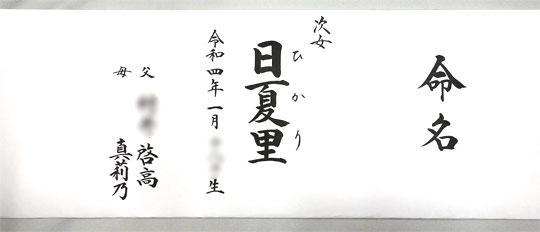 命名
次女
日夏里
ひかり
令和四年一月 生
父 啓高
母 真莉乃